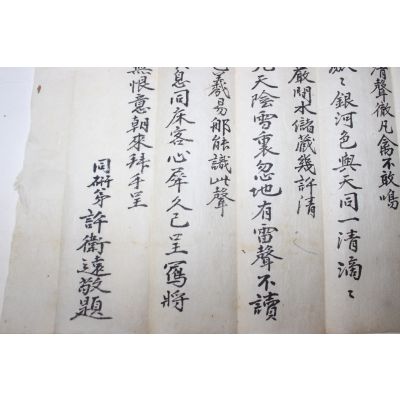 聲徹凡禽不敢鳴
銀河色與天同一清滴〻
嚴閉水儲藏幾許清
天陰雪裏忽地有雷聲不讀
羲易那能識此聲
息同床客心犀久已呈寫將
無恨意朝來拜手呈
同衛弟許衛遠敬題